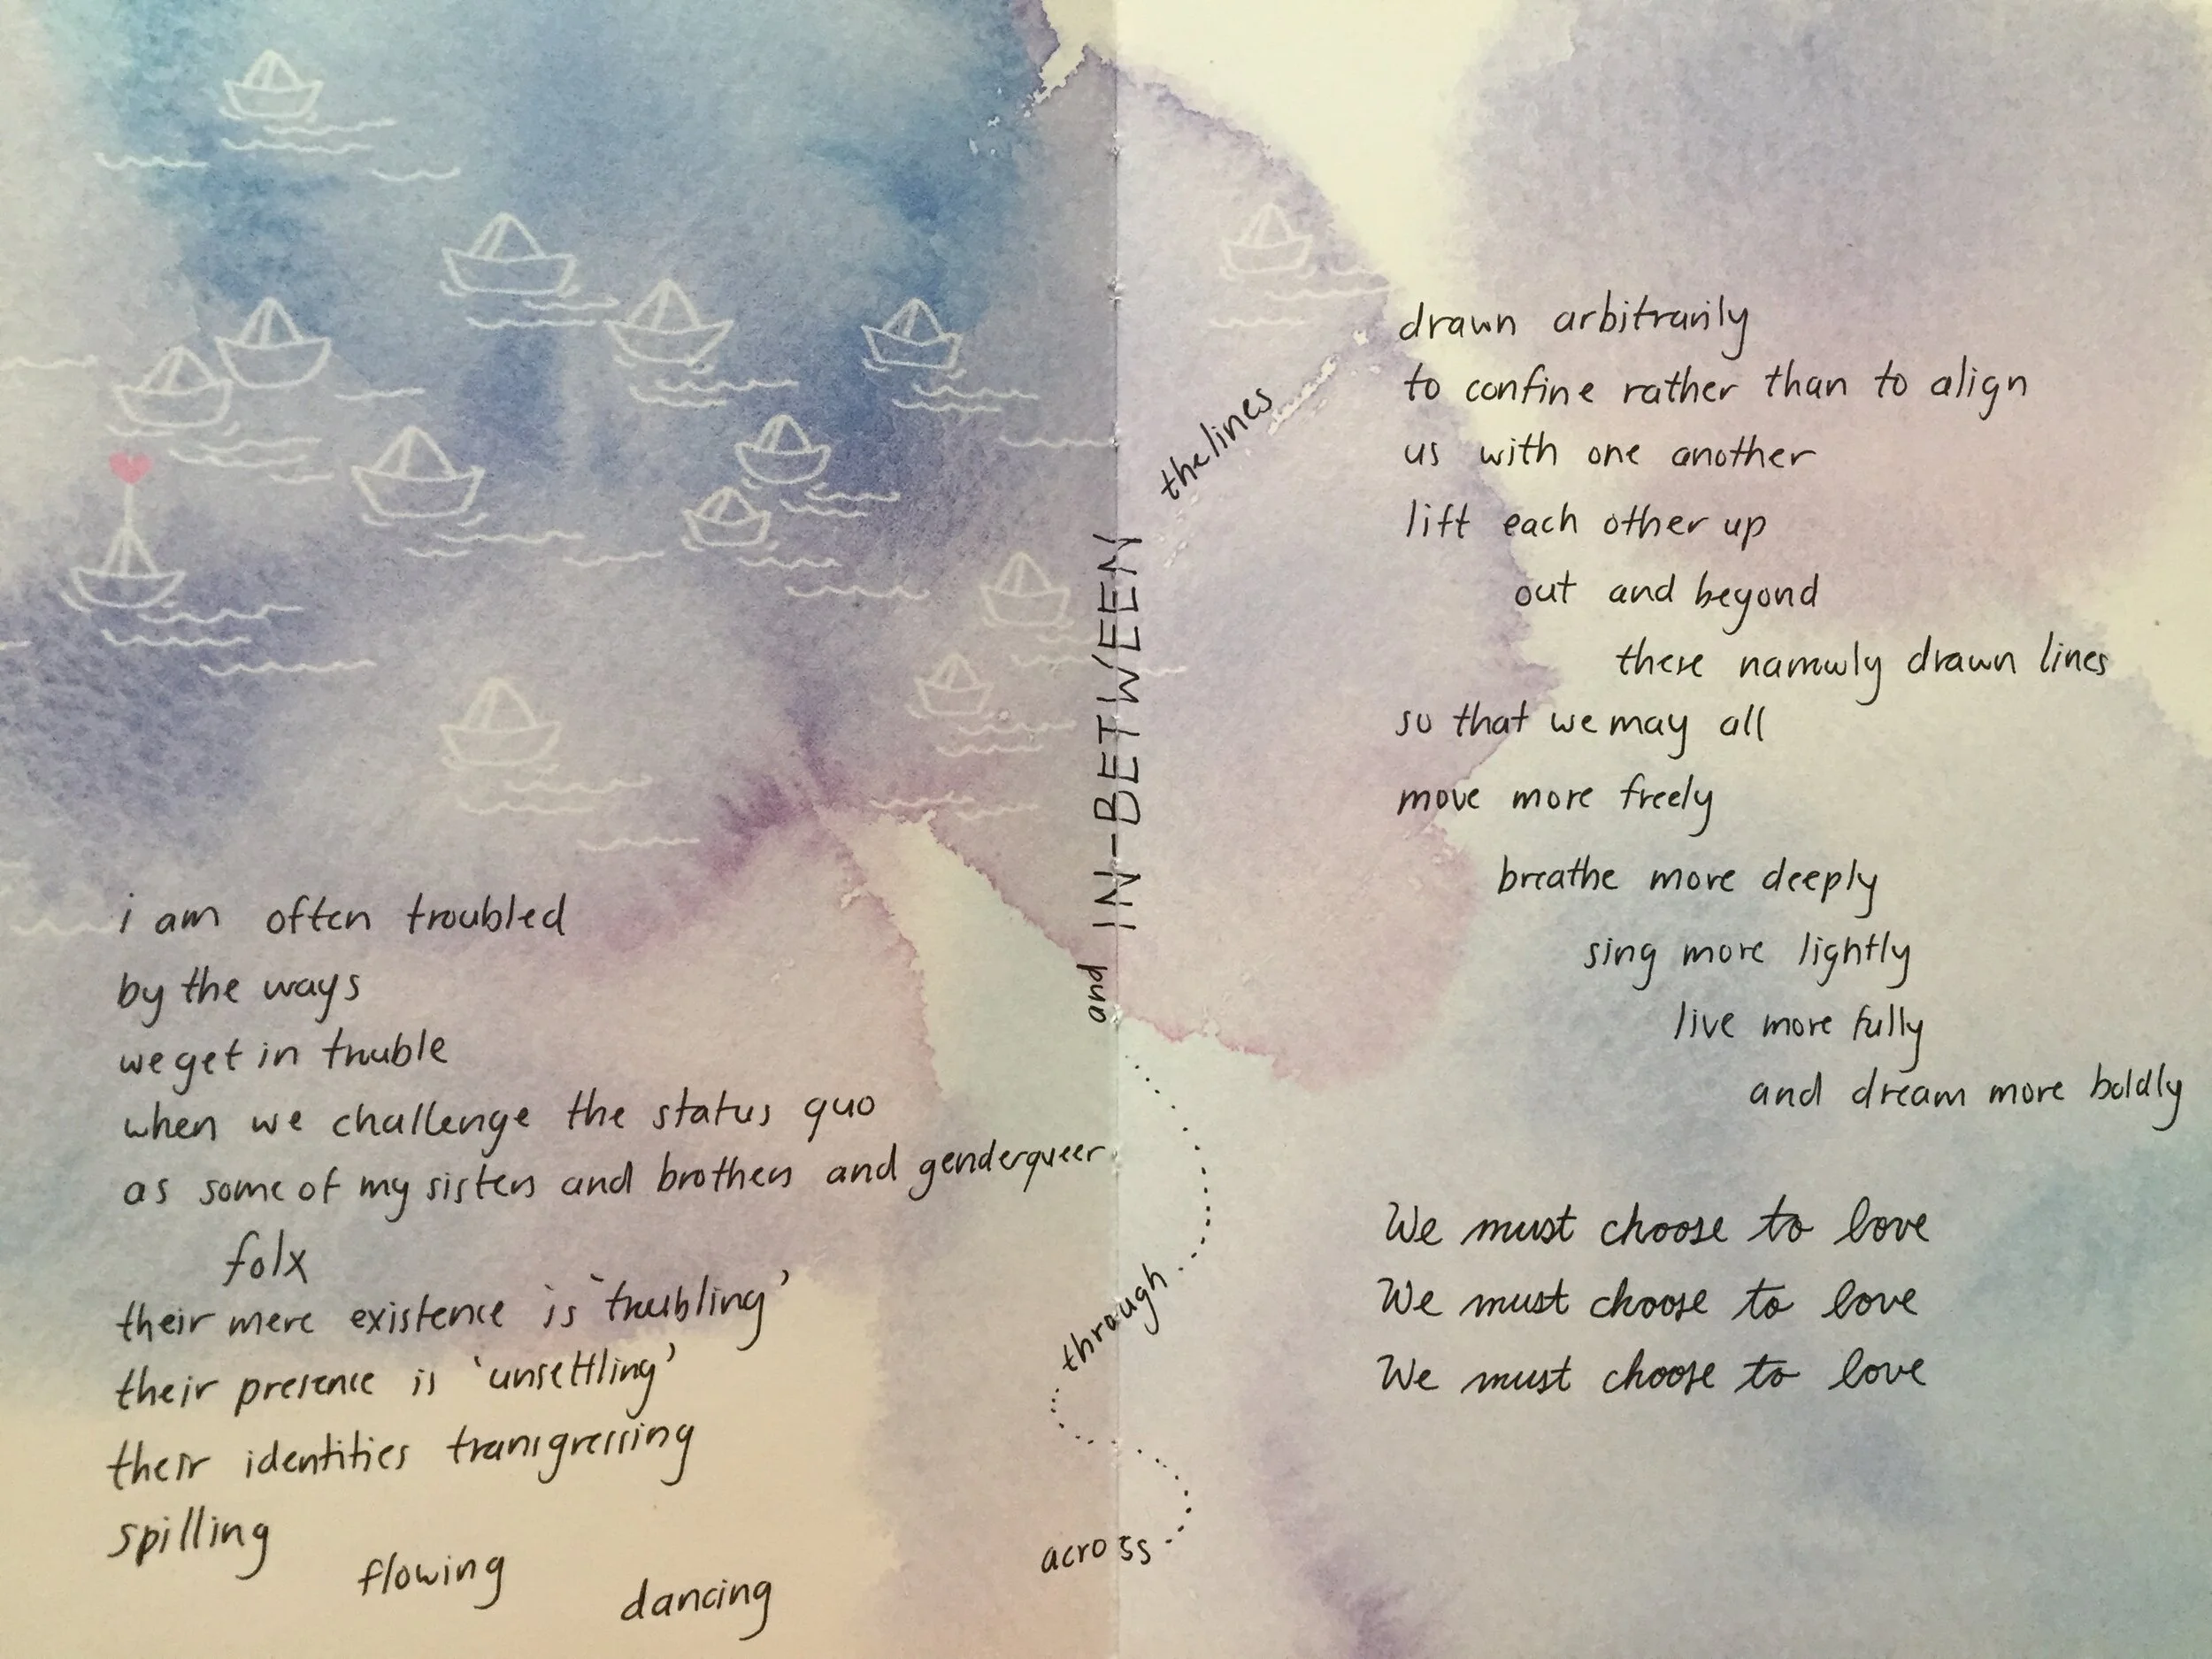 i am often troubled
by the ways
we get in trouble
when we challenge the status quo
as some of my sisters and brothers and genderqueer
folx
their mere existence is 'troubling'
their presence is 'unsettling'
their identities transgressing
spilling
flowing
dancing
across
through
and IN-BETWEEN
the lines
drawn arbitrarily
to confine rather than to align
us with one another
lift each other up
out and beyond
these narrowly drawn lines
so that we may all
move more freely
breathe more deeply
sing more lightly
live more fully
and dream more boldly
We must choose to love
We must choose to love
We must choose to love